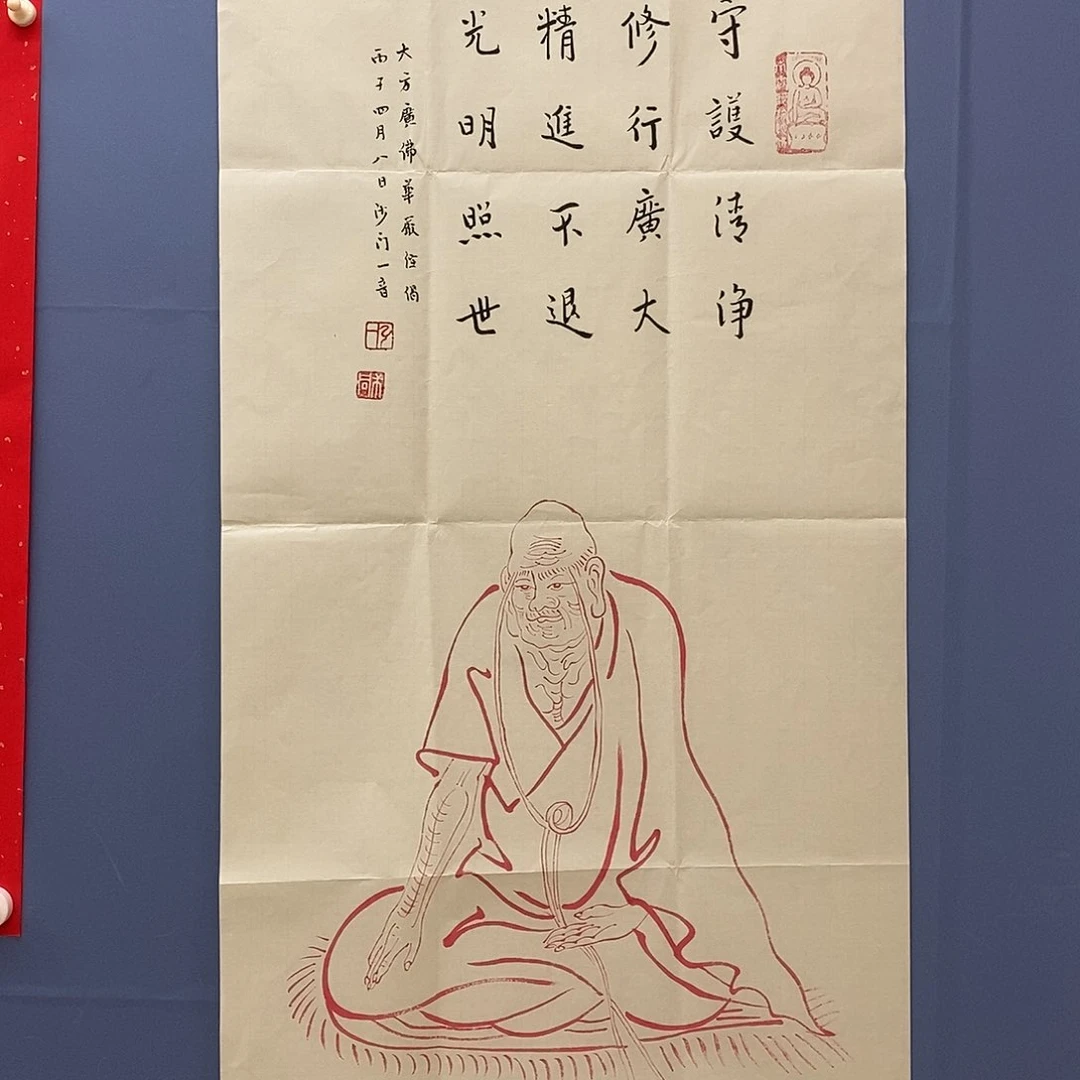 守護清淨
修行廣大
精進不退
光明照世
大方廣佛華嚴經偈
丙子四月八日沙门一音